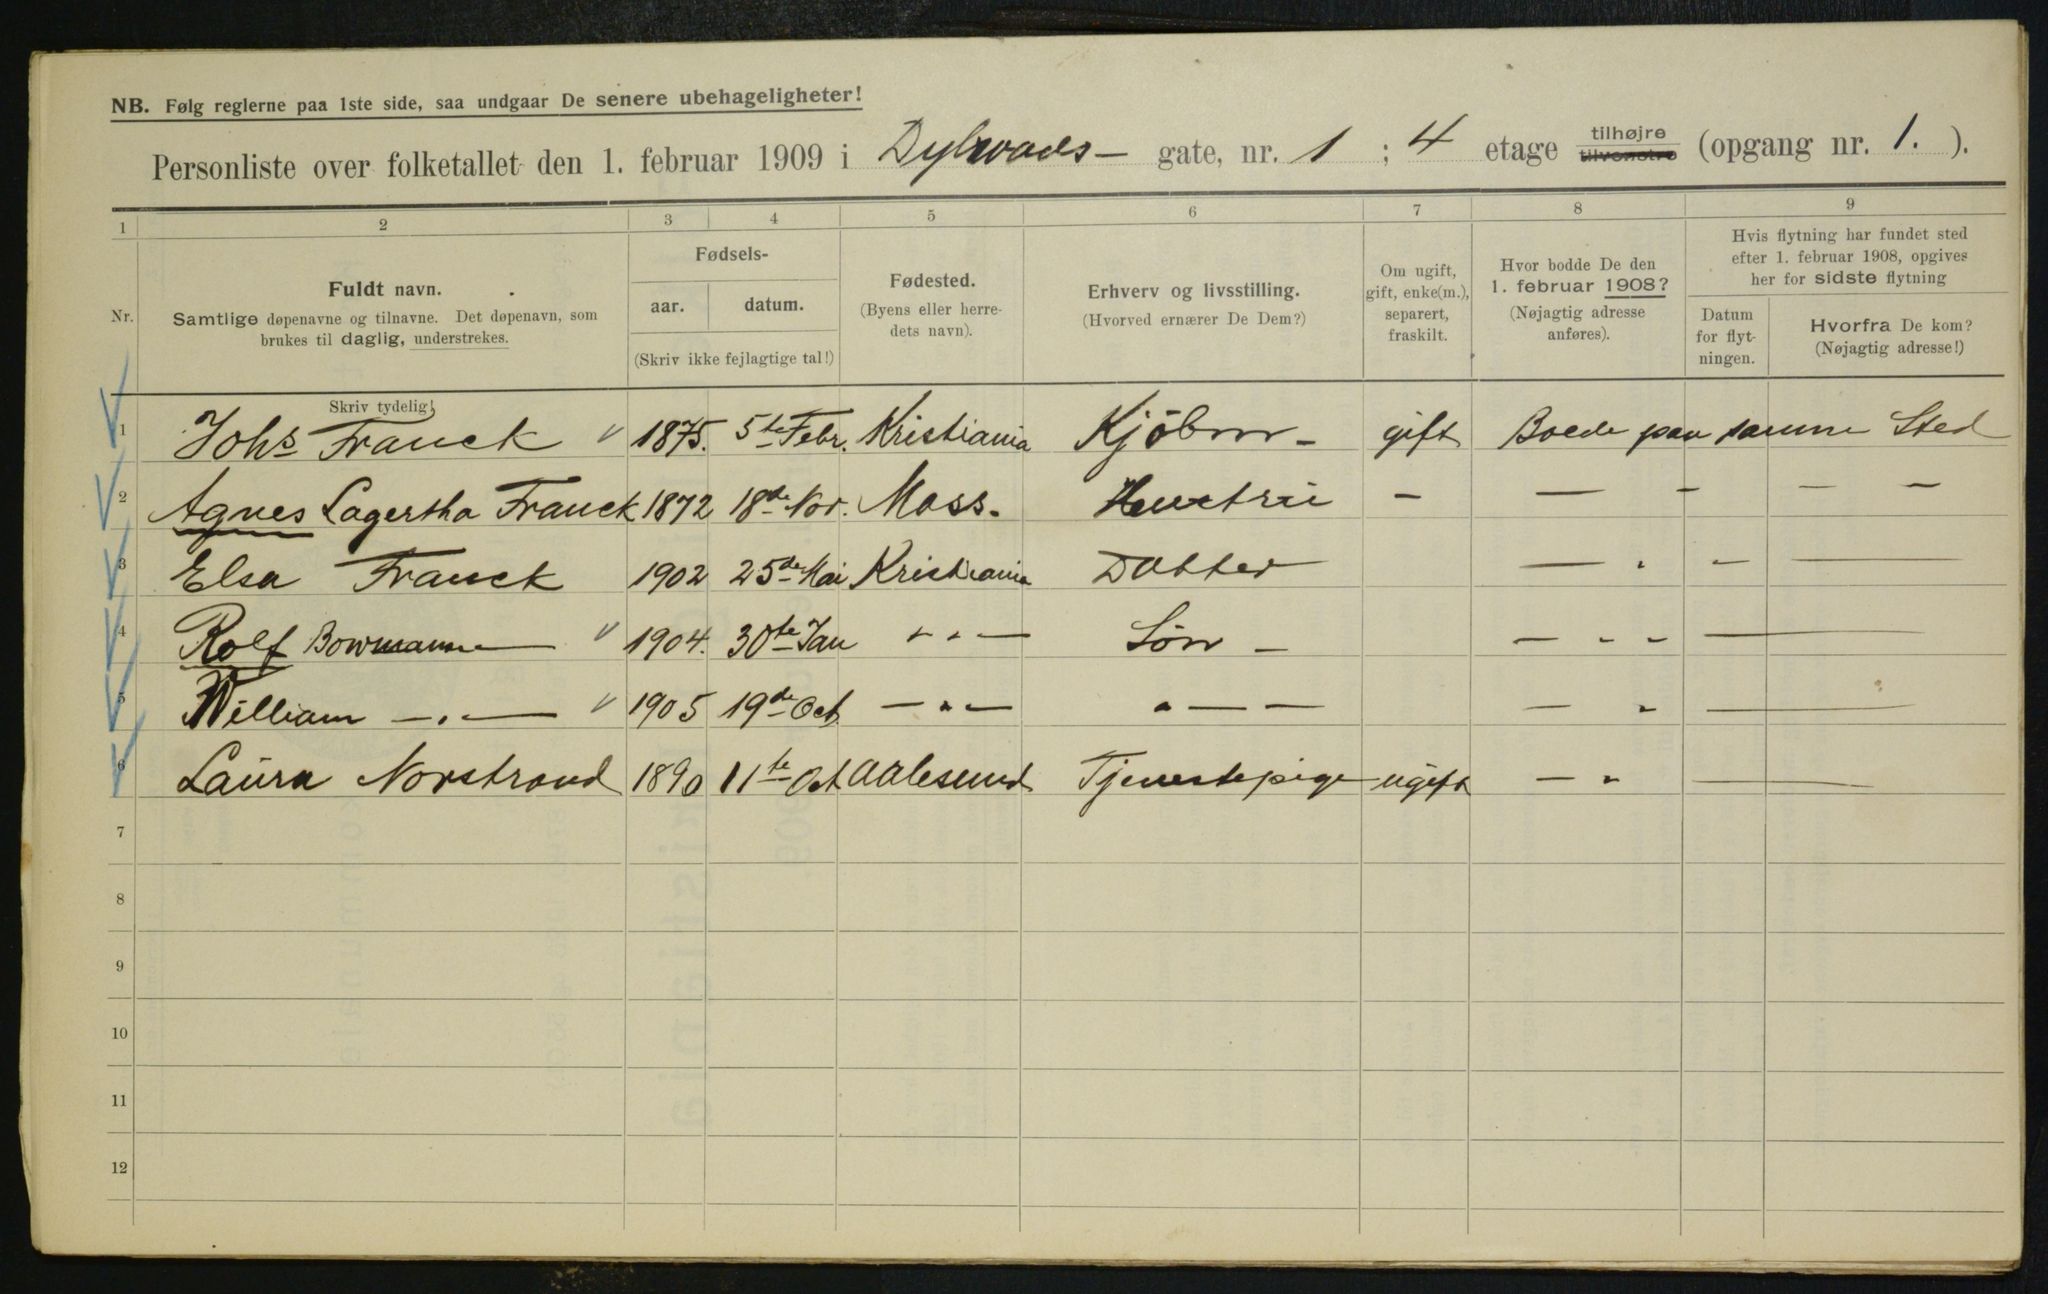 NB. Følg reglerne paa 1ste side, saa undgaar De senere ubehageligheter!
Personliste over folketallet den 1. februar 1909 i Dybwads- gate, nr. 1 ; 4 etage tilhøjre tilvenstre (opgang nr. 1. ).
1 2 3 4 5 6 7 8 9
Nr.
Fuldt navn.
Samtlige døpenavne og tilnavne. Det døpenavn, som
brukes til daglig, understrekes.
Skriv tydelig!
Fødsels-
aar. datum.
(Skriv ikke fejlagtige tal!)
Fødested.
(Byens eller herre-
dets navn).
Erhverv og livsstilling.
(Hvorved ernærer De Dem?)
Om ugift,
gift, enke(m.),
separert,
fraskilt.
Hvor bodde De den
1. februar 1908?
(Nøjagtig adresse
anføres).
Hvis flytning har fundet sted
efter 1. februar 1908, opgives
her for sidste flytning
Datum
for flyt-
ningen.
Hvorfra De kom?
(Nøjagtig adresse!)
1 Johs Franck 1875. 5te Febr. Kristiania Kjöbm- gift Boede paa samme Sted
2 Agnes Lagertha Franck 1872 18de Nov. Moss. Hustru - — - — -
3 Elsa Franck 1902 25de Mai Kristiania Datter — " - —
4 Rolf Bowmann — 1904. 30te Jan " " — Sön - — " " —
5 William — " — 1905 19de Oct. — " — " — — — " —
6 Laura Norstrand 1890 11te Oct Aalesund Tjenestepige ugift — " —
7
8
9
10
11
12